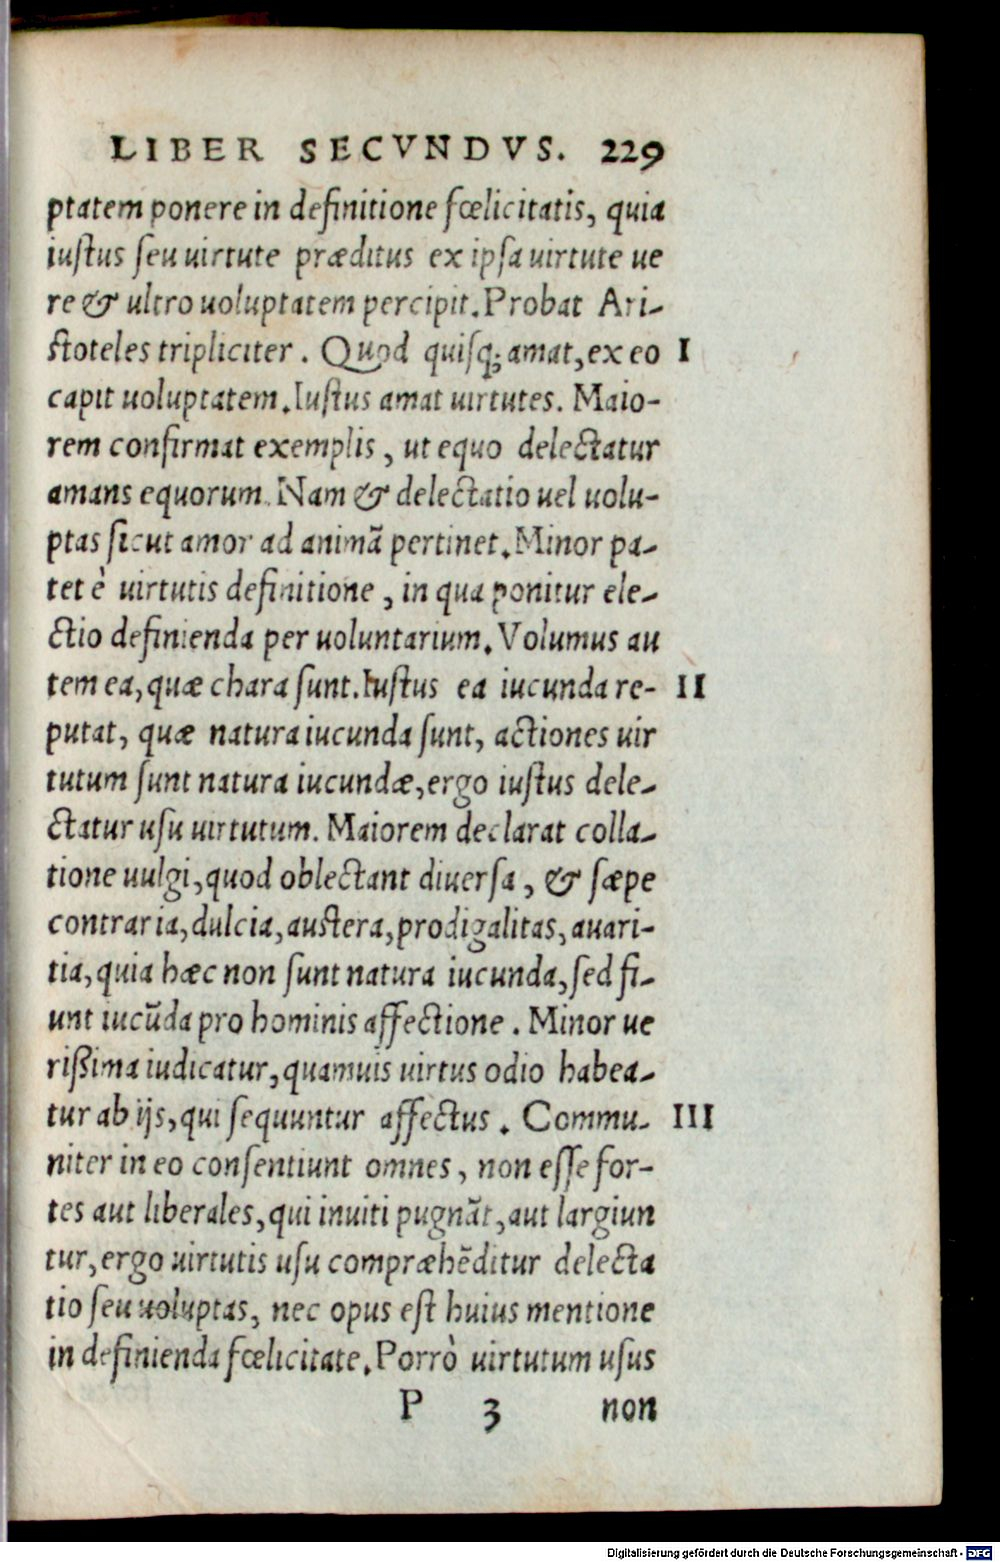 LIBER SECVNDVS. 229
ptatem ponere in definitione fœlicitatis, quia
iustus seu uirtute præditus ex ipsa uirtute ue
re & ultro uoluptatem percipit. Probat Ari-
stoteles tripliciter. Quod quisq; amat, ex eo I
capit uoluptatem. Iustus amat uirtutes. Maio-
rem confirmat exemplis, ut equo delectatur
amans equorum. Nam & delectatio uel uolu-
ptas sicut amor ad animã pertinet. Minor pa-
tet è uirtutis definitione, in qua ponitur ele-
ctio definienda per uoluntarium. Volumus au
tem ea, quæ chara sunt. Iustus ea iucunda re- II
putat, quæ natura iucunda sunt, actiones uir
tutum sunt natura iucundæ, ergo iustus dele-
ctatur usu uirtutum. Maiorem declarat colla-
tione uulgi, quod oblectant diuersa, & sæpe
contraria, dulcia, austera, prodigalitas, auari-
tia, quia hæc non sunt natura iucunda, sed fi-
unt iucũda pro hominis affectione. Minor ue
rißima iudicatur, quamuis uirtus odio habea-
tur ab ijs, qui sequuntur affectus. Commu- III
niter in eo consentiunt omnes, non esse for-
tes aut liberales, qui inuiti pugnãt, aut largiun
tur, ergo uirtutis usu compræhẽditur delecta
tio seu uoluptas, nec opus est huius mentione
in definienda fœlicitate. Porrò uirtutum usus
P 3 non
Digitalisierung gefördert durch die Deutsche Forschungsgemeinschaft - DFG